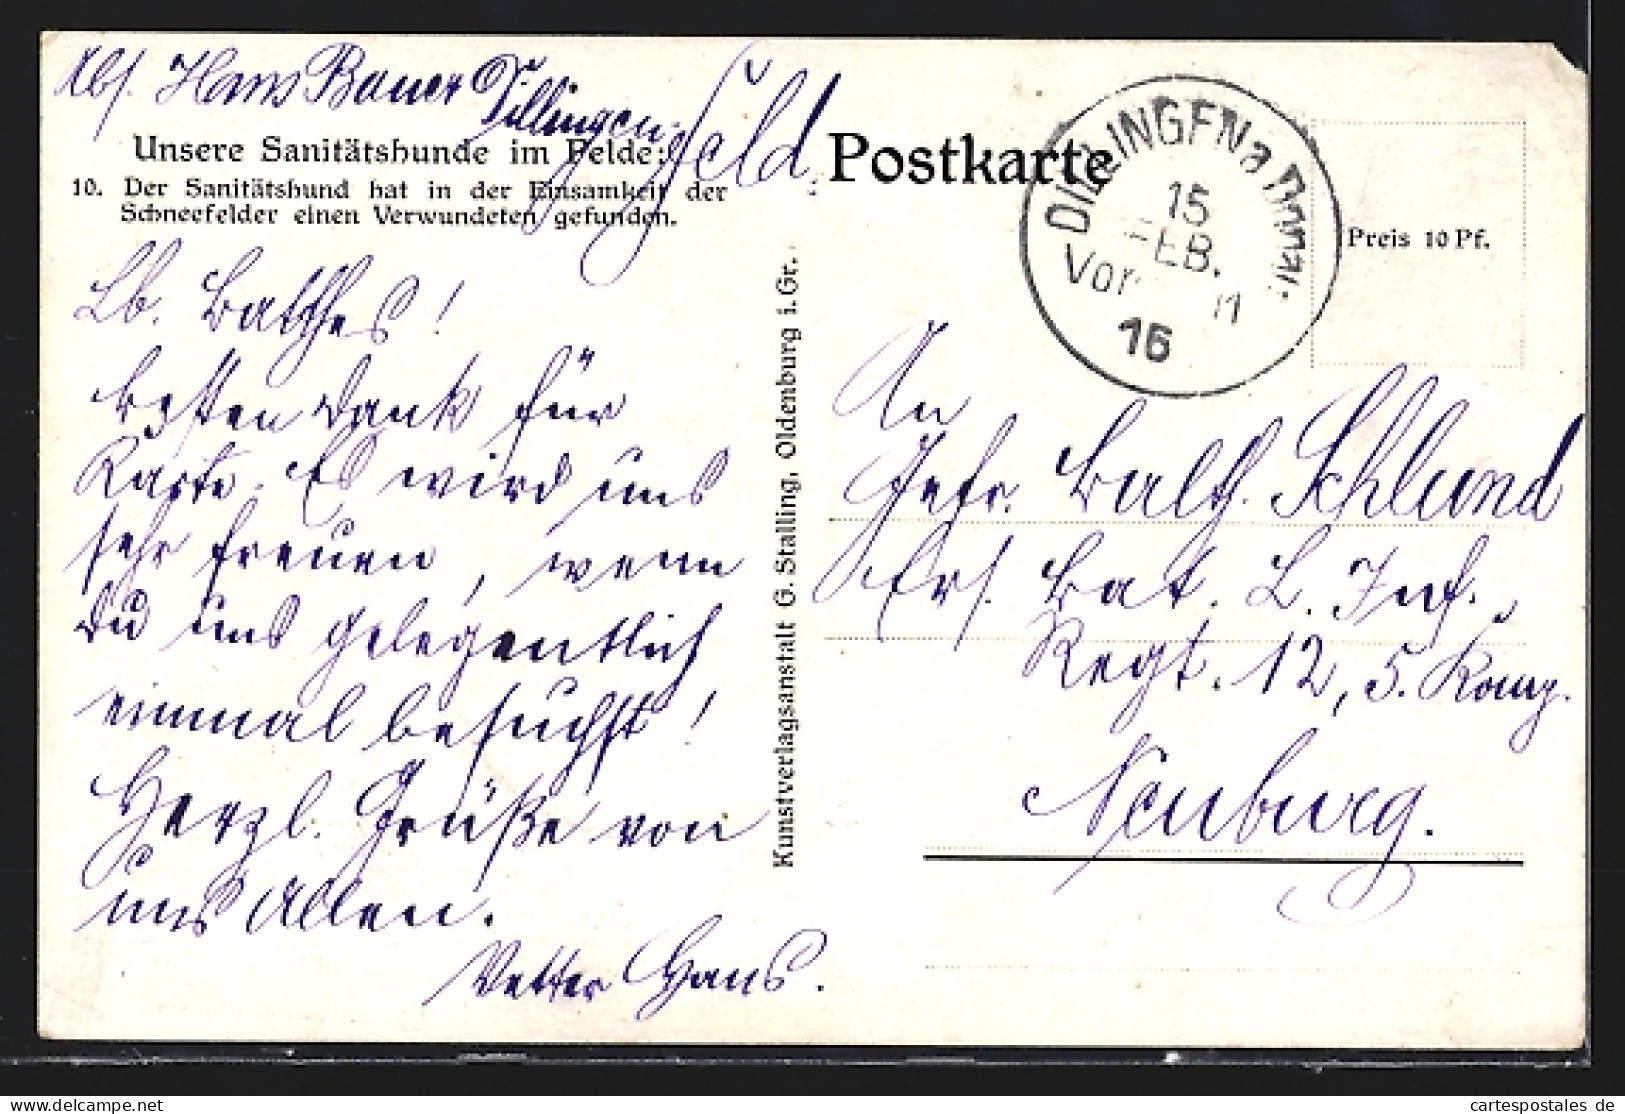 Abs. Hans Bauer Dillingen
Feld
Postkarte
Unsere Sanitätshunde im Felde:
10. Der Sanitätshund hat in der Einsamkeit der
Schneefelder einen Verwundeten gefunden.
Lb. Balthes!
besten Dank für
Karte. Es wird uns
sehr freuen, wenn
Du uns gelegentlich
einmal besuchst!
Herzl. Grüße von
uns Allen.
Vetter Hans.
Kunstverlagsanstalt G. Stalling, Oldenburg i. Gr.
DILLINGEN a Donau.
15
FEB.
Vor
16
Preis 10 Pf.
An
Gefr. Balth. Schlund
Ers. Bat. L. Inf.
Regt. 12, 5. Komp.
Neuburg.
cartespostales de